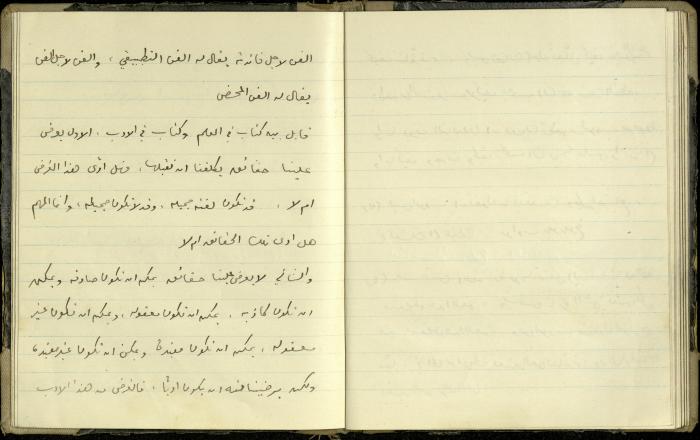 الفن لاجل فائدة يقال له الفن التطبيقي ، والفن لاجل الفن
يقال له الفن المحض
قابل بين كتاب في العلم وكتاب في الادب ، الاول يعرض
علينا حقائق يكلفنا ان نقبلها ، فهل ادى هذا الغرض
ام لا ، قد تكون لغته جميله ، وقد لا تكون جميله ، وانما المهم
هل ادى تلك الحقائق ام لا
والثاني لا يعرض علينا حقائق يمكن ان تكون صادقه ويمكن
ان تكون كاذبه ، يمكن ان تكون معقوله ، ويمكن ان تكون غير
معقوله ، يمكن ان تكون مفيدة ويمكن ان تكون غير مفيدة
ولكن يرضينا منه ان يكون ادبًا ، فالغرض من هذا الادب